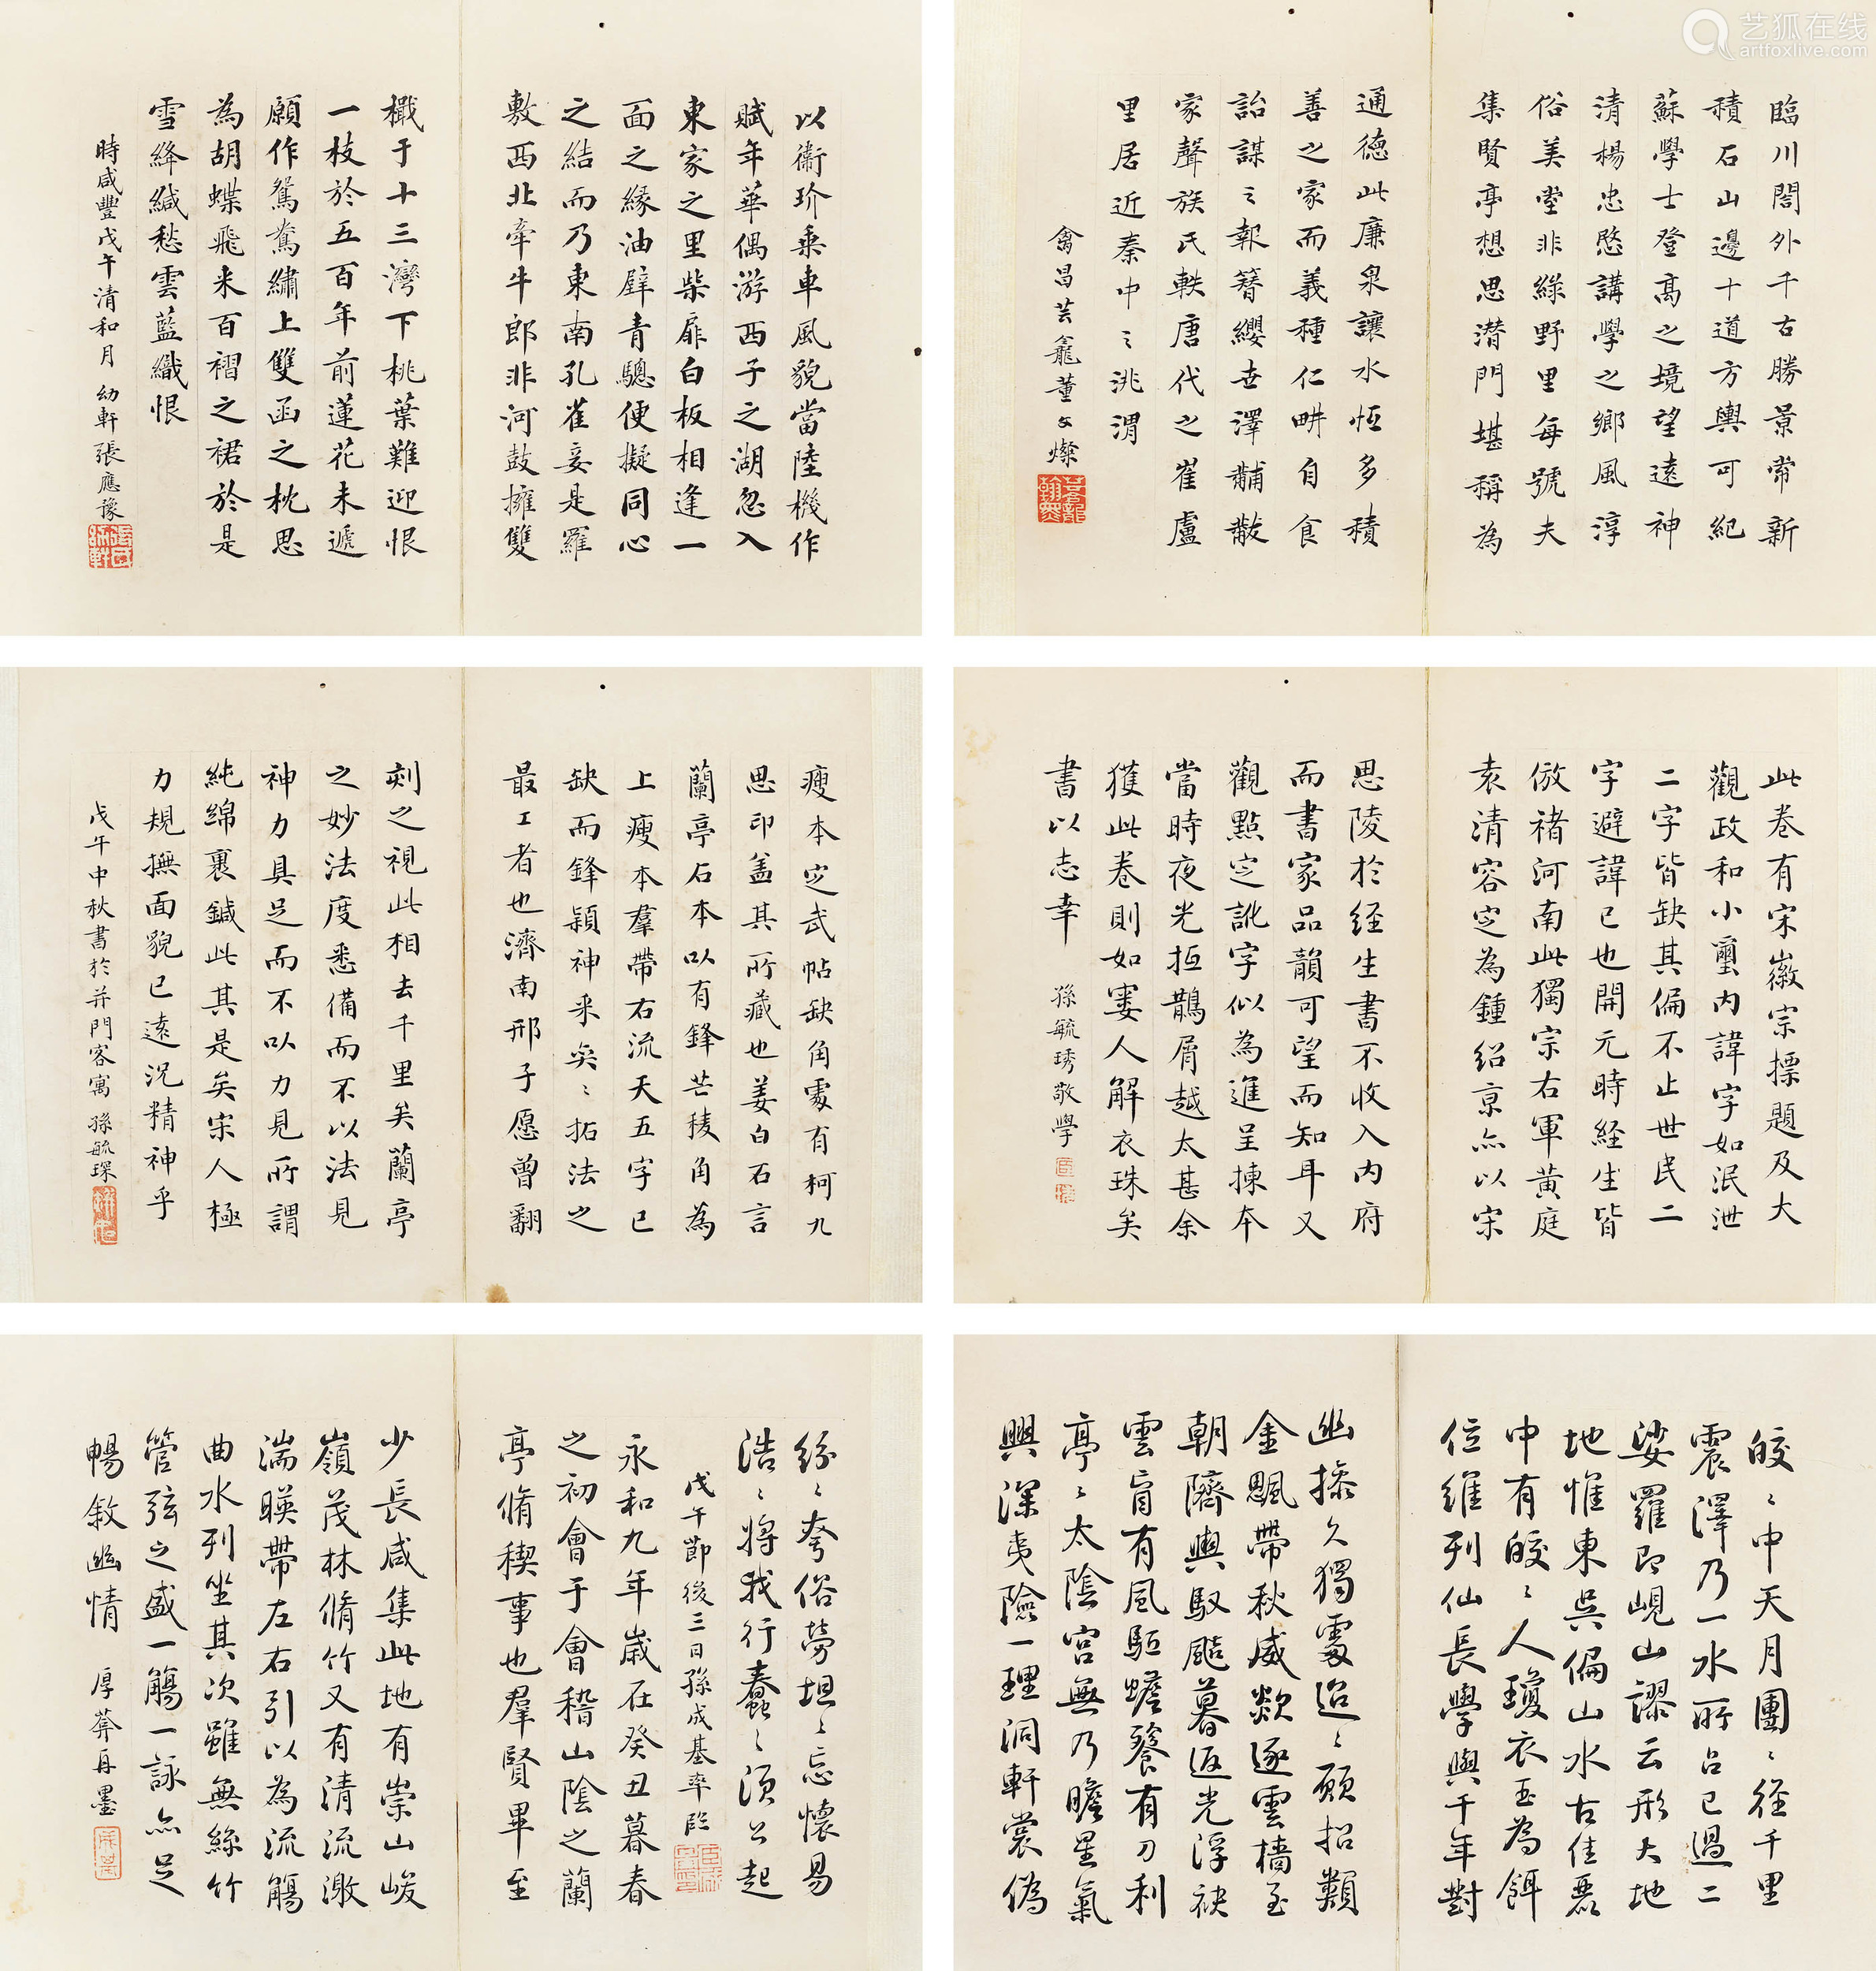 艺狐在线
artfoxlive.com
臨川閣外千古勝景常新
積石山邊十道方輿可紀
蘇學士登高之境望遠神
清楊忠愍講學之鄉風淳
俗美堂非綠野里每號夫
集賢亭想思潜門堪稱為
通德此廉泉讓水恆多積
善之家而義種仁畊自食
詒謀之報簪纓世澤黼黻
家聲族氏軼唐代之崔盧
里居近秦中之洮渭
禽昌芸龕董文燦
以衛玠乗車風貌當陸機作
賦年華偶游西子之湖忽入
東家之里柴扉白板相逢一
面之緣油壁青驄便擬同心
之結而乃東南孔雀妾是羅
敷西北牽牛郎非河鼓擁雙
檝于十三灣下桃葉難迎恨
一枝於五百年前蓮花未遞
願作鴛鴦繡上雙函之枕思
為胡蝶飛来百褶之裙於是
雪絳緘愁雲藍織恨
時咸豐戊午清和月 幼軒張應豫
此卷有宋徽宗標題及大
觀政和小璽内諱字如泯泄
二字皆缺其偏不止世民二
字避諱已也開元時経生皆
倣褚河南此獨宗右軍黄庭
袁清容定為鍾紹京亦以宋
思陵於经生書不收入内府
而書家品韻可望而知耳又
觀點定訛字似為進呈揀本
當時夜光抵鵲屑越太甚余
獲此卷則如窶人解衣珠矣
書以志幸
孫毓琇敬學
瘦本定武帖缺角處有柯九
思印盖其所藏也姜白石言
蘭亭石本以有鋒芒稜角為
上瘦本羣帶右流天五字已
缺而鋒穎神采奕々拓法之
最工者也濟南邢子愿曾翻
刻之視此相去千里矣蘭亭
之妙法度悉備而不以法見
神力具足而不以力見所謂
純綿裹鍼此其是矣宋人極
力規撫面貌已遠況精神乎
戊午中秋書於并門客寓 孫毓琛
皎々中天月團々径千里
震澤乃一水所占已過二
娑羅即峴山謬云形大地
地惟東吳偏山水古佳麗
中有皎々人瓊衣玉為餌
位維列仙長學與千年對
幽操久獨處迢々願招類
金飈帶秋威欻逐雲檣至
朝隮輿馭飈暮返光浮袂
雲肓有風駏蟾餮有刀利
亭々太陰宮無乃瞻星氣
興深夷險一理洞軒裳偽
紛々夸俗勞坦々忘懷易
浩々將我行蠢々須公起
戊午節後三日孫成基率臨
永和九年歲在癸丑暮春
之初會于會稽山陰之蘭
亭脩稧事也羣賢畢至
少長咸集此地有崇山峻
嶺茂林脩竹又有清流激
湍暎帶左右引以為流觴
曲水列坐其次雖無絲竹
管弦之盛一觴一詠亦足
暢敘幽情
厚葊再墨